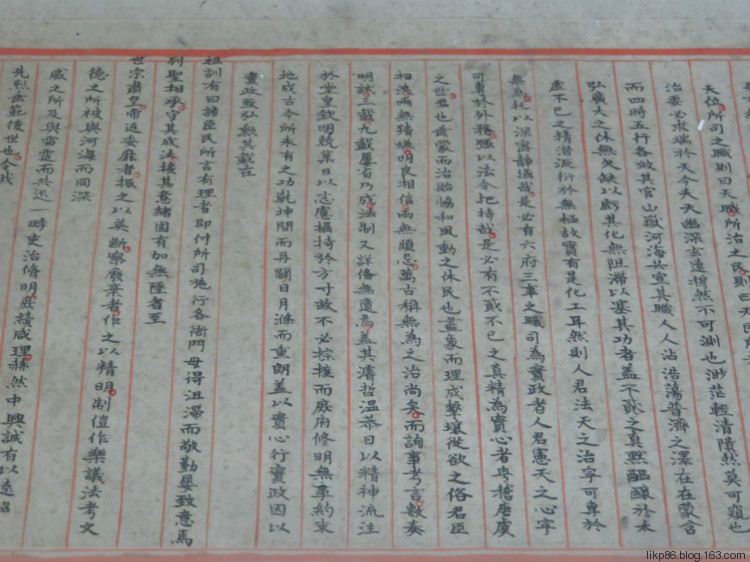 天位所司之職則曰天職所治之民則曰天民所
治要必求端於天今夫天幽深玄遠穆然不可測也渺茫輕清隤然莫可窺也
而四時五行各效其官山嶽河海共宣其職人人沾浩蕩普濟之澤在在蒙含
弘廣大之休無欠缺以虧其化無阻滯以塞其功者蓋不貳之真默醞釀於太
虛不已之精潛流衍於無極故實有是化工耳然則人君法天之治寧可專於
無為托以深密靜攝哉是必有六府三事之職司為實政者人君憲天之心寧
可專於外務強以法令把持哉是必有不貳不已之真精為實心者粵稽唐虞
之世君也垂裳而治貽協和風動之休民也畫象而理成擊壤從欲之俗君臣
相浹兩無猜嫌明良相信兩無顧忌萬古稱無為之治尚矣而詢事考言敷奏
明試三載九載屢省乃成法制又詳備無遺焉蓋其濬哲溫恭日以精神流注
於堂皇欽明兢業日以志慮攝持於方寸故不必綜核而庶府修明無事約束
地成古今所未有之功乾坤開而再闢日月滌而重朗蓋以實心行實政因以
實政致弘勳其載在
祖訓有曰諸臣民所言有理者即付所司施行各衙門毋得沮滯而敬勤屢致意焉
列聖相承守其成法接其意緒固有加無隆者至
世宗肅皇帝返委靡者振之以英斷察廢棄者作之以精明制禮作樂議法考文
德之所被與河海而同深
威之所及與雷霆而共迅一時吏治修明庶績咸理赫然中興誠有以遠紹
先烈垂範後世也今我
likp86.blog.163.com